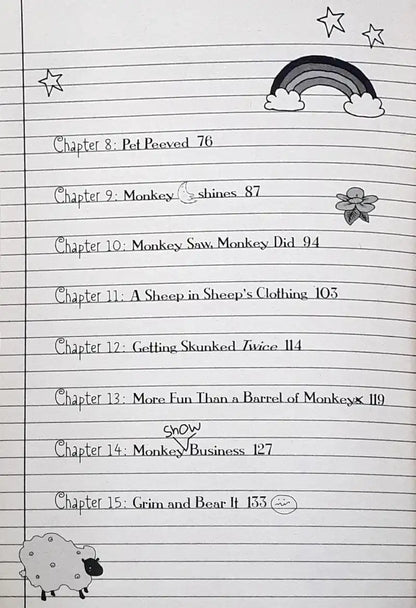 Chapter 8: Pet Peeved 76
Chapter 9: Monkey shines 87
Chapter 10: Monkey Saw, Monkey Did 94
Chapter 11: A Sheep in Sheep's Clothing 103
Chapter 12: Getting Skunked Twice 114
Chapter 13: More Fun Than a Barrel of Monkeys 119
show
Chapter 14: Monkey Business 127
Chapter 15: Grim and Bear It 133